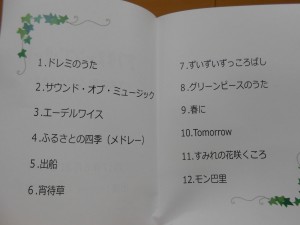 1.ドレミのうた
2.サウンド・オブ・ミュージック
3.エーデルワイス
4.ふるさとの四季（メドレー）
5.出船
6.宵待草
7.ずいずいずっころばし
8.グリーンピースのうた
9.春に
10.Tomorrow
11.すみれの花咲くころ
12.モン巴里